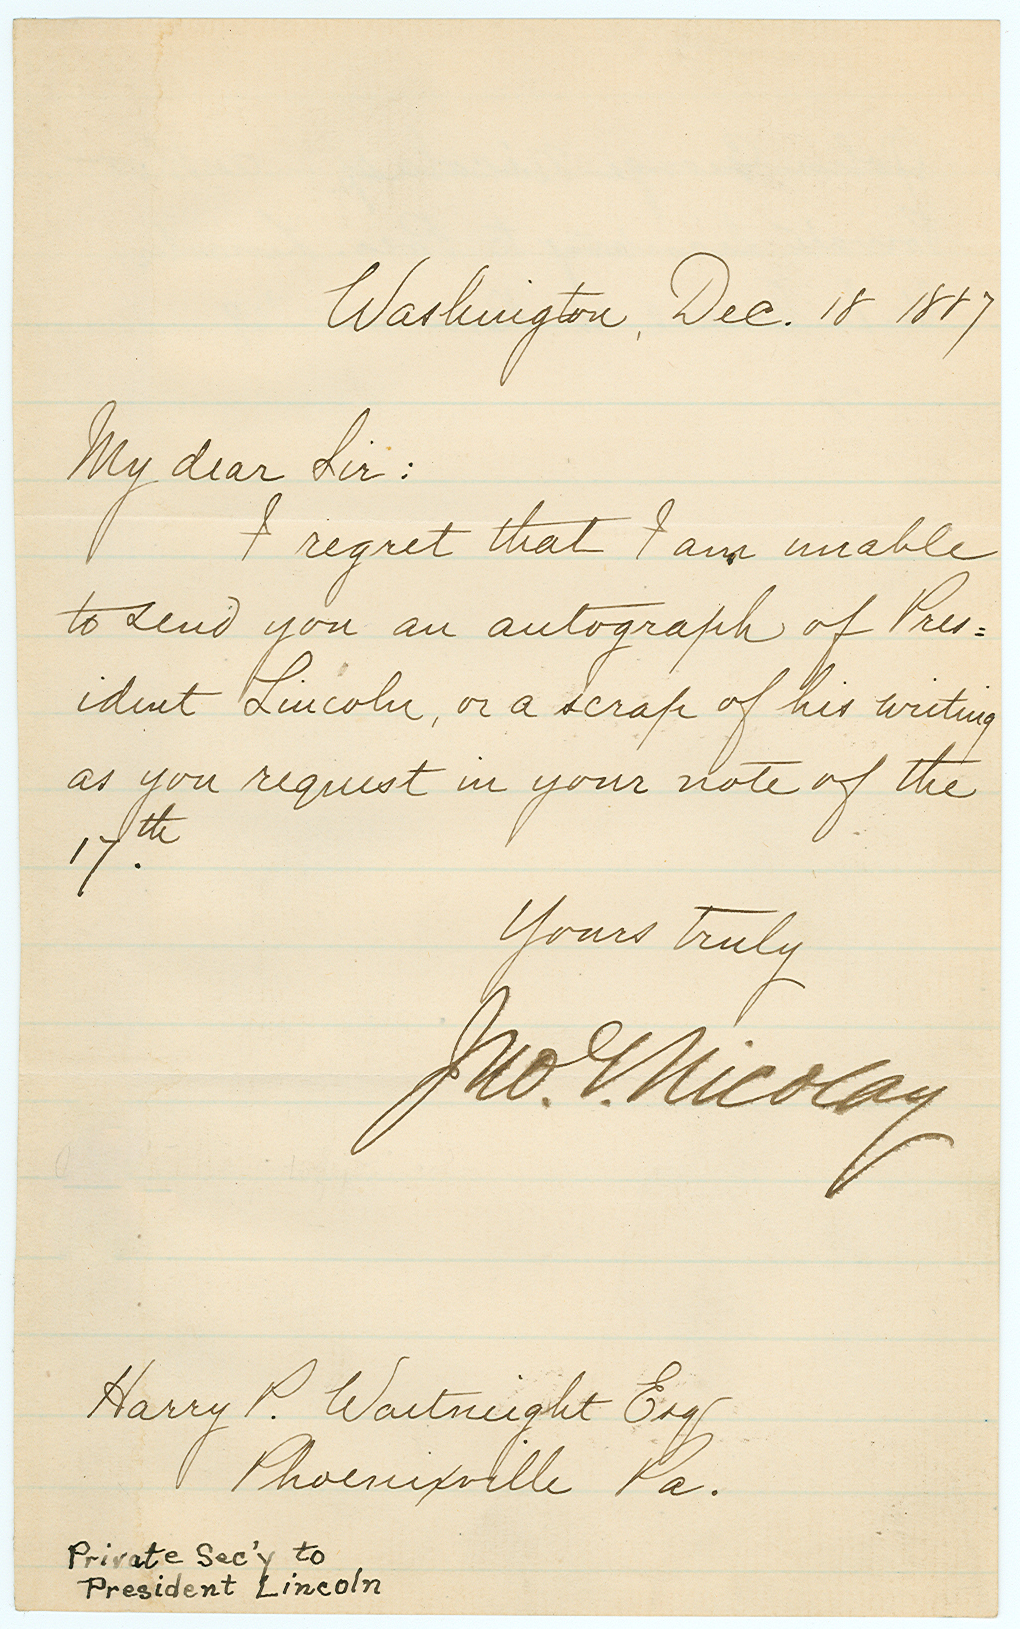 Washington, Dec. 18 1887
My dear Sir:
I regret that I am unable
to send you an autograph of Pres=
ident Lincoln, or a scrap of his writing
as you request in your note of the
17th.
Yours truly
Jno. G. Nicolay
Harry P. Waitneight Esq
Phoenixville Pa.
Private Sec'y to
President Lincoln